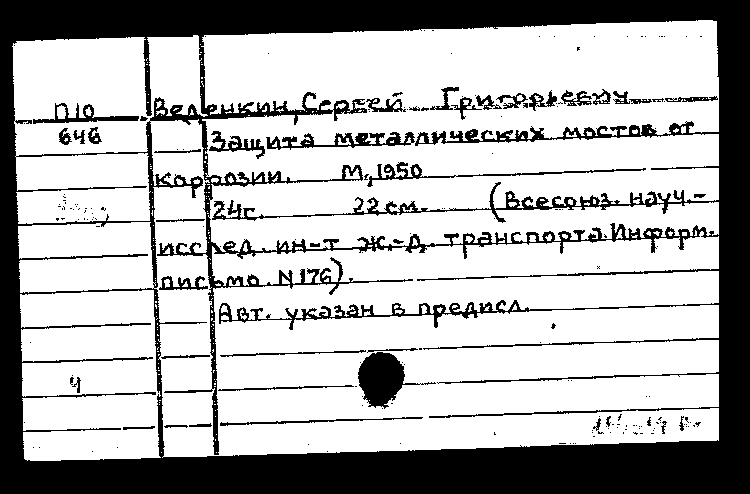 П10 Веденкин, Сергей Григорьевич
646 Защита металлических мостов от
коррозии. М., 1950
24с. 22 см. (Всесоюз. науч.-
исслед. ин-т ж.-д. транспорта. Информ.
письмо. N 176).
Авт. указан в предисл.
4